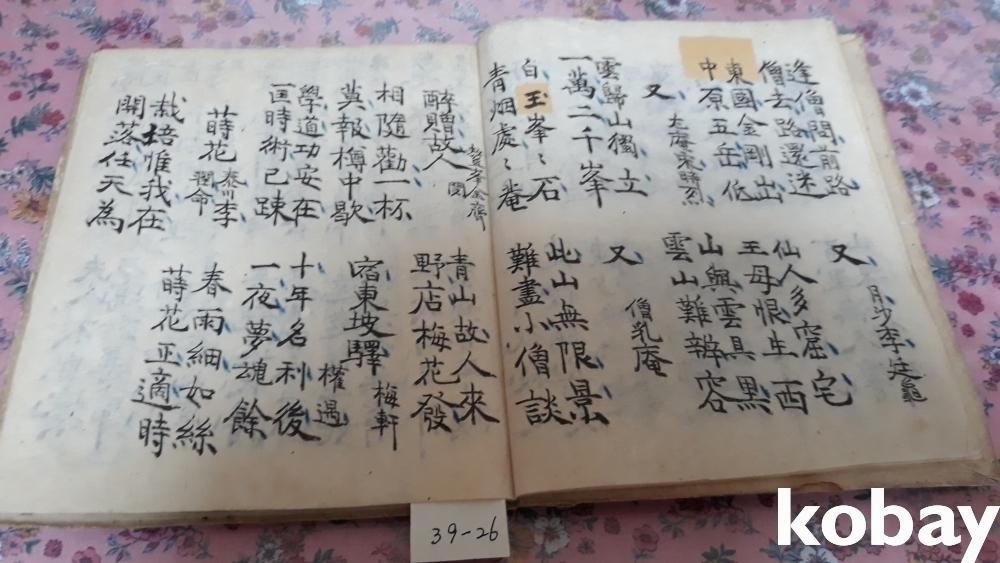 逢僧問前路
僧去路還迷
又
月沙李廷龜
東國金剛出
中原五岳低
仙人多窟宅
王母恨生西
又
尤庵宋時烈
山與雲具黑
雲山難辨容
雲歸山獨立
一萬二千峯
又
僧乳庵
白玉峯〻石
青烟處〻庵
此山無限景
難盡小僧談
醉贈故人
金齊閔
青山故人來
野店梅花發
相隨勸一杯
莫報樽中歇
宿東坡驛
梅軒
權遇
學道功安在
匡時術已踈
十年名利後
一夜夢魂餘
蒔花
泰川李
潤命
春雨細如絲
蒔花正適時
栽培惟我在
開落任天為
39-26
kobay